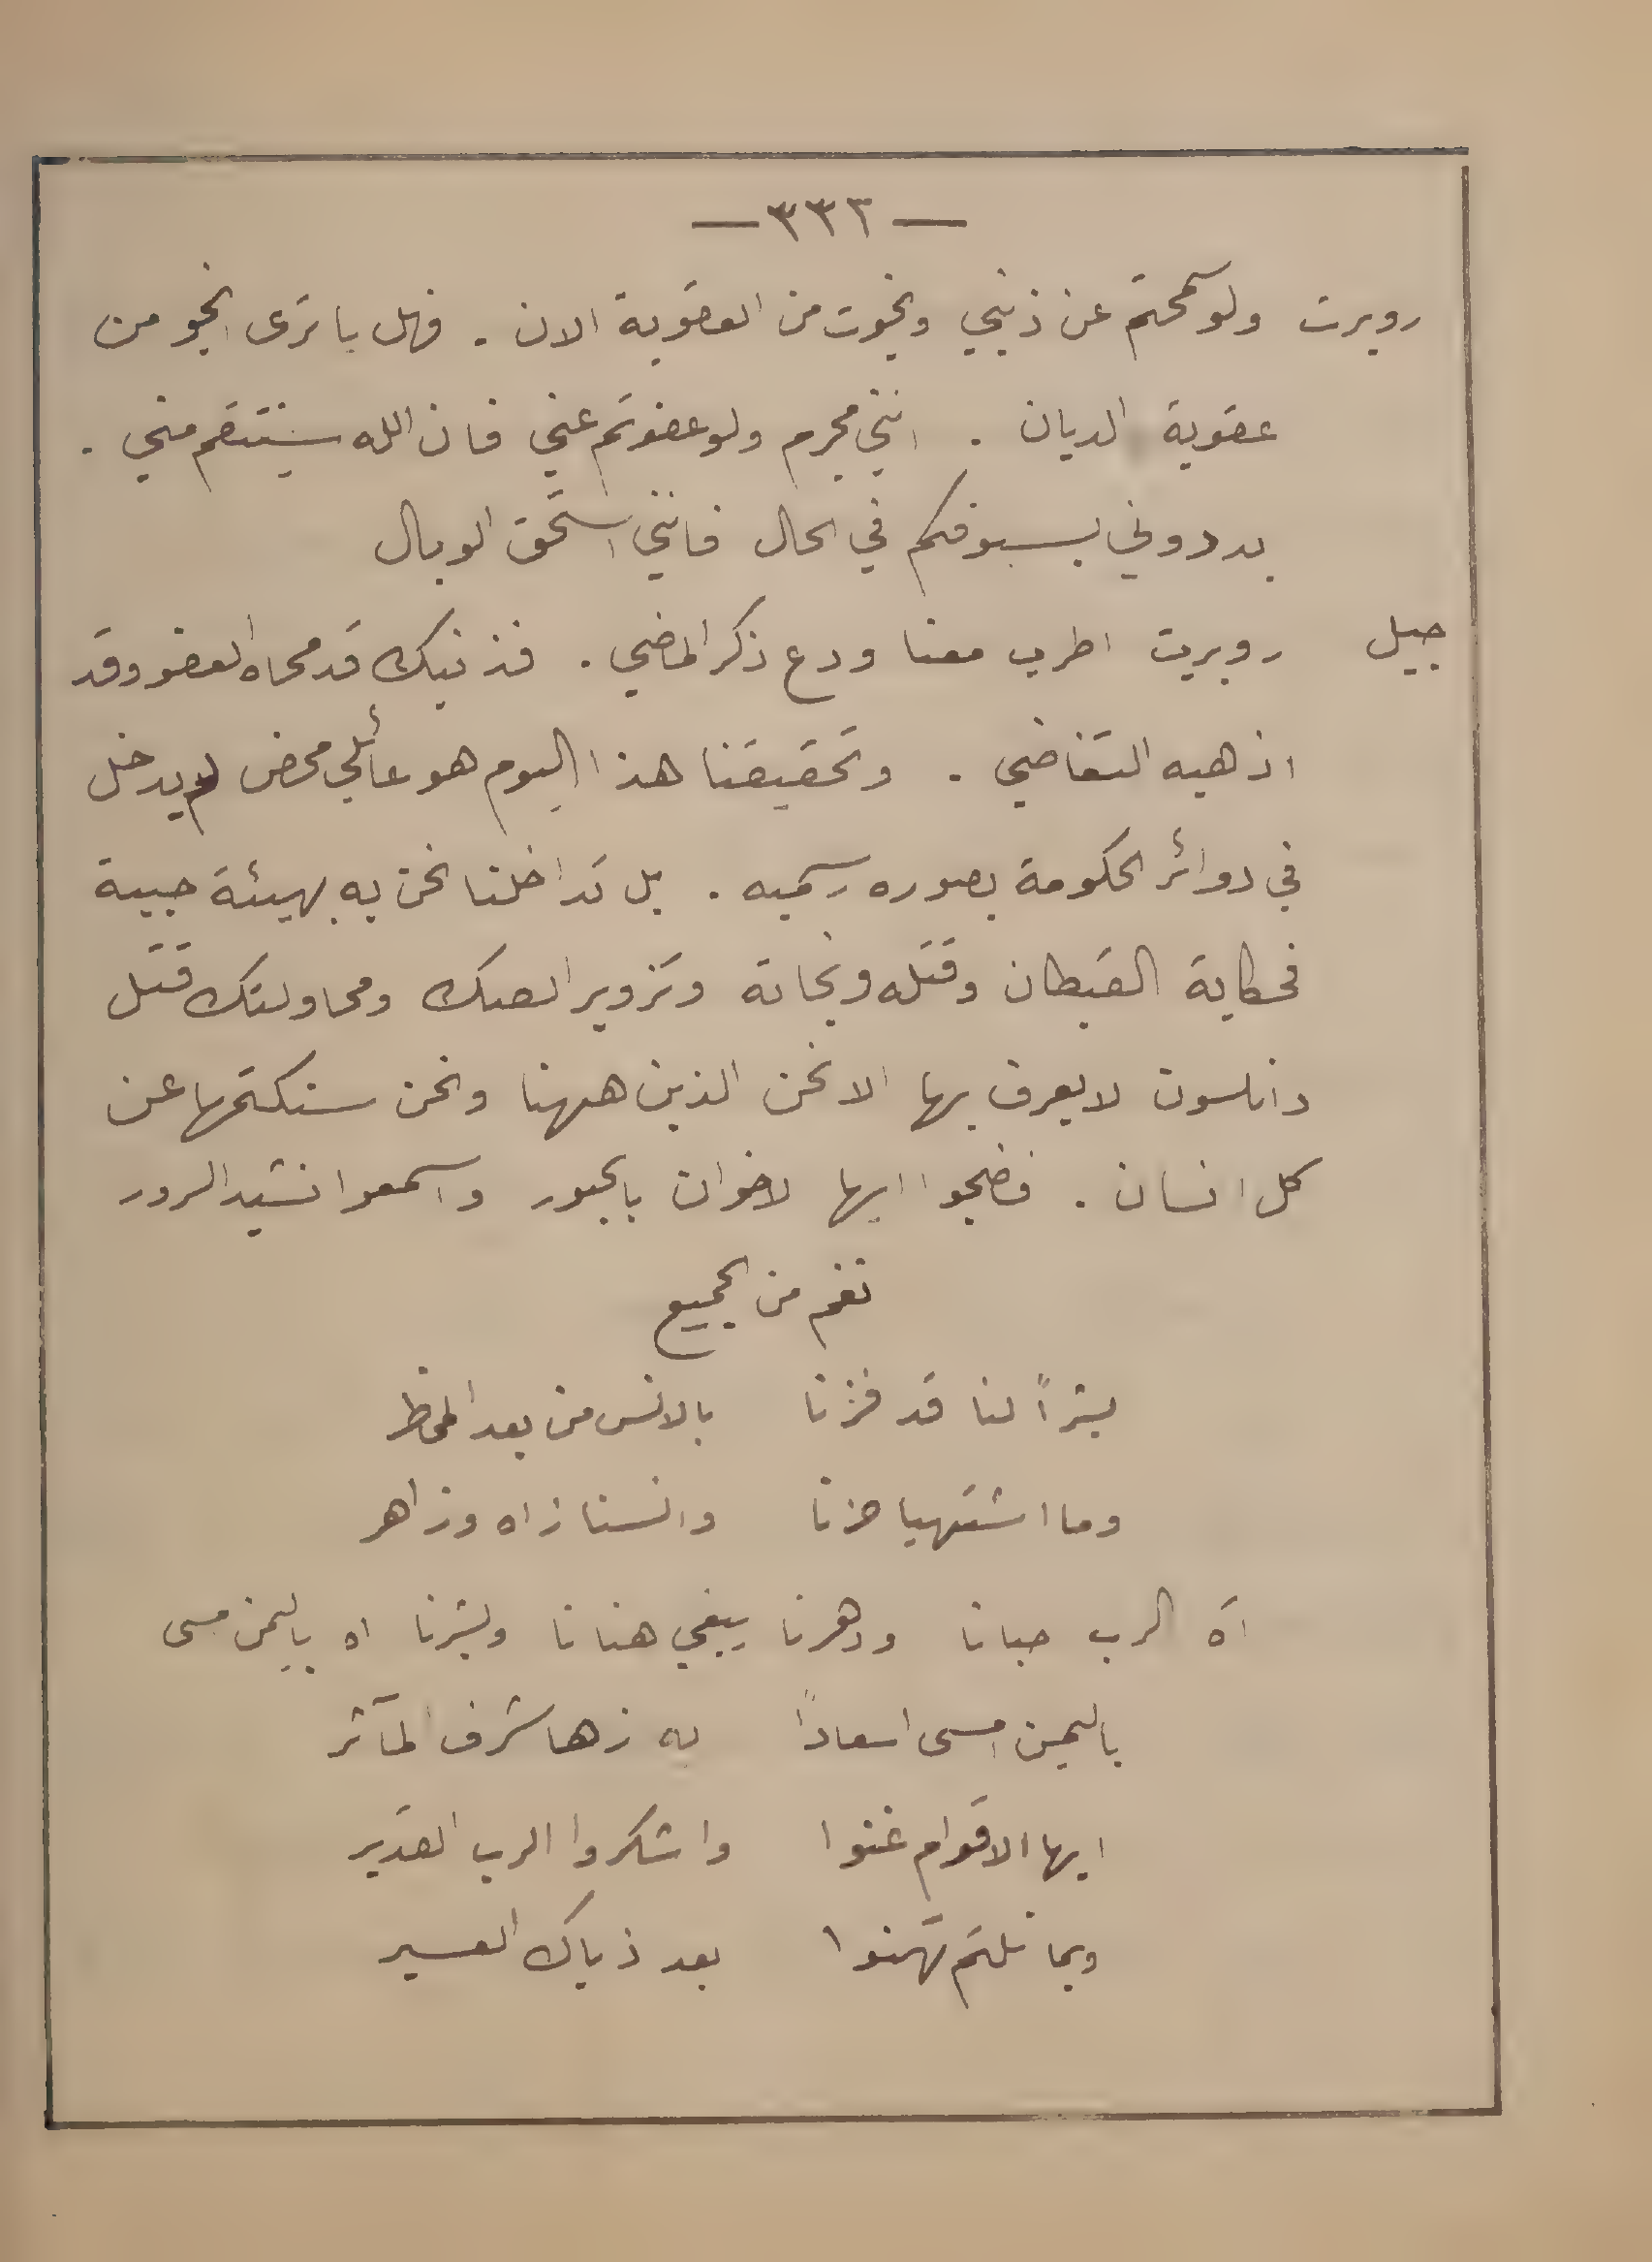 — ٣٣٢ —
روبرت ولو سمحتم عن ذنبي ونجوت من العقوبة الان . فهل يا ترى انجو من
عقوبة الديان . انني مجرم ولو عفوتم عني فان الله سينتقم مني .
بددوني بسيوفكم في الحال فانني استحق الوبال
جيل روبريت اطرب معنا ودع ذكر الماضي . فذنبك قد محاه العفو وقد
اذهبه التغاضي . وتحقيقنا هذا اليوم هو عائلي محض لم يدخل
في دوائر الحكومة بصوره رسميه . بل تداخلنا نحن به بهيئة حبية
فحكاية القبطان وقتله ونجاته وتزوير الصك ومحاولتك قتل
دانلسون لا يعرف بها الا نحن الذين ههنا ونحن سنكتمها عن
كل انسان . فضجوا ايها لاخوان بالحبور واسمعوا نشيد السرور
نغم من الجميع
بشراً لنا قد فزنا بالانس من بعد المخاطر
وما اشتهينا حزنا وانسنا زاه وزاهر
آه الرب حبانا ودهرنا يبغي هنانا وبشرنا اه باليمن مسى
باليمن امسى اسعاداً به زها شرف المآثر
ايها الاقوام غنوا واشكروا الرب القدير
وبما نلتم تهنوا بعد ذياك العسير